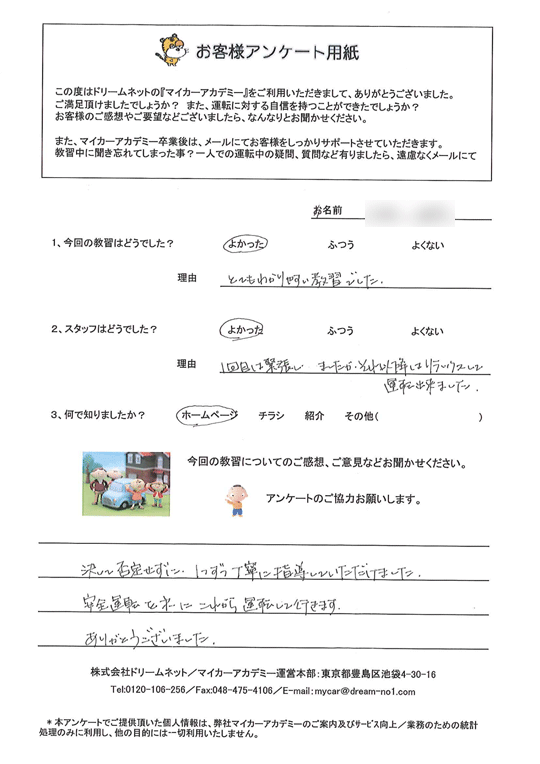 お客様アンケート用紙
この度はドリームネットの『マイカーアカデミー』をご利用いただきまして、ありがとうございました。
ご満足頂けましたでしょうか？ また、運転に対する自信を持つことができたでしょうか？
お客様のご感想やご要望などございましたら、なんなりとお聞かせください。
また、マイカーアカデミー卒業後は、メールにてお客様をしっかりサポートさせていただきます。
教習中に聞き忘れてしまった事？一人での運転中の疑問、質問など有りましたら、遠慮なくメールにて
お名前
1、今回の教習はどうでした？ よかった ふつう よくない
理由 とてもわかりやすい教習でした.
2、スタッフはどうでした？ よかった ふつう よくない
理由 1回目は緊張し ましたが、それ以降はリラックスして
運転出来ました.
3、何で知りましたか？ ホームページ チラシ 紹介 その他( )
今回の教習についてのご感想、ご意見などお聞かせください。
アンケートのご協力お願いします。
決して否定せずに、1つずつ丁寧に指導していただけました.
安全運転 に これから 運転して行きます.
ありがとうございました.
株式会社ドリームネット／マイカーアカデミー運営本部：東京都豊島区池袋4-30-16
Tel:0120-106-256／Fax:048-475-4106／E-mail:mycar@dream-no1.com
＊本アンケートでご提供頂いた個人情報は、弊社マイカーアカデミーのご案内及びサービス向上／業務のための統計
処理のみに利用し、他の目的には一切利用いたしません。